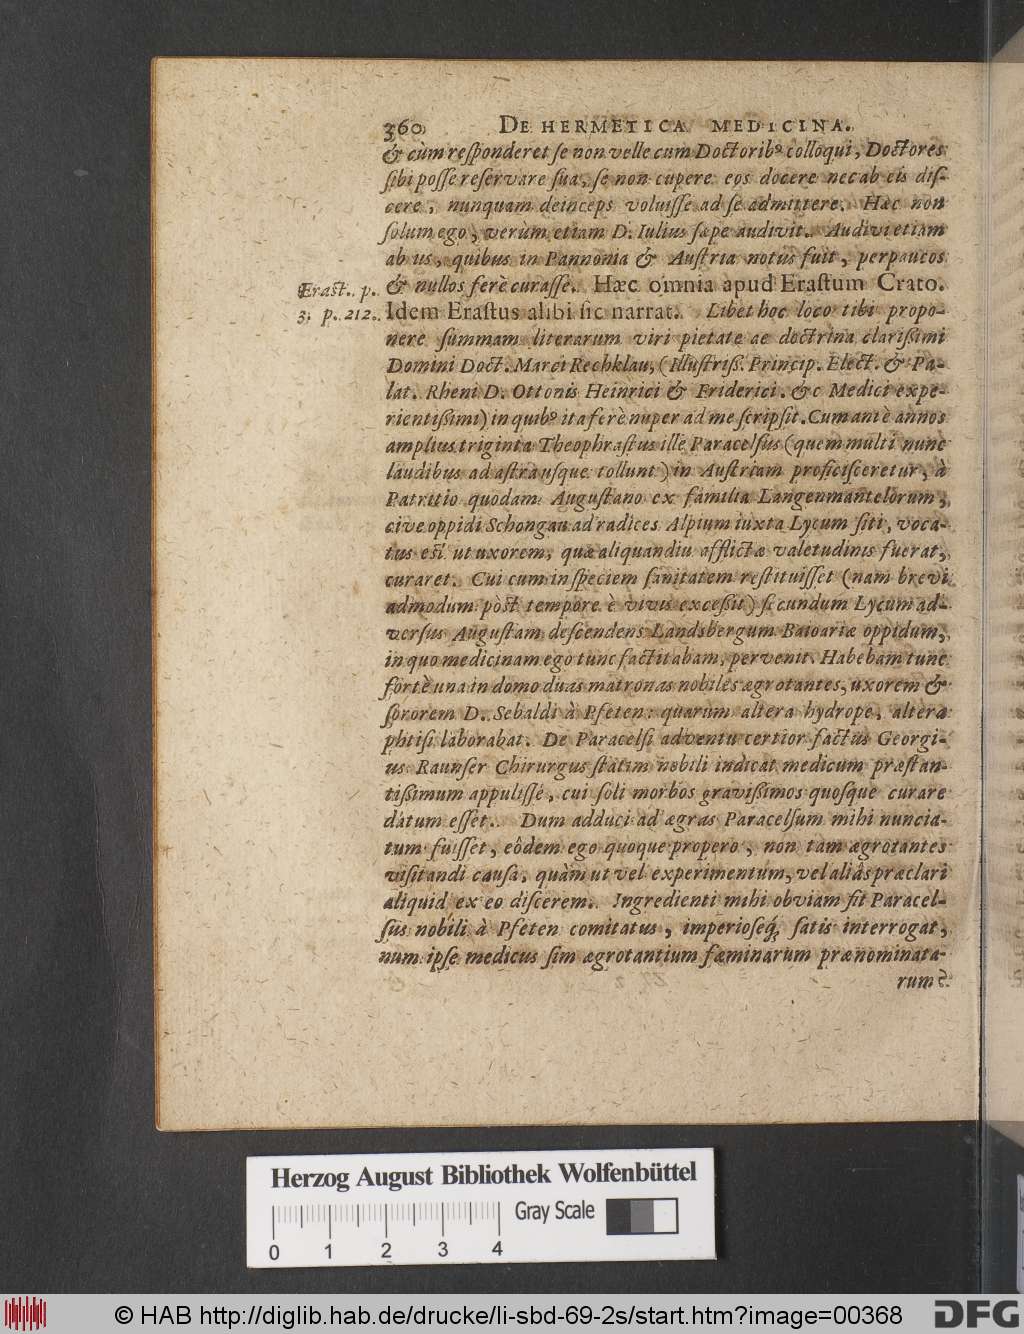 360 DE HERMETICA MEDICINA.
& cùm responderet se non velle cum Doctoribꝰ colloqui, Doctores
sibi posse reservare sua, se non cupere eos docere nec ab eis dis-
cere, nunquam deinceps voluisse ad se admittere. Hæc non
solum ego, verùm etiam D. Iulius sæpe audivit. Audivi etiam
ab iis, quibus in Pannonia & Austria notus fuit, perpaucos
& nullos ferè curasse. Hæc omnia apud Erastum Crato.
Erast. p.
3. p. 212.
Idem Erastus alibi sic narrat. Libet hoc loco tibi propo-
nere summam literarum viri pietate ac doctrina clarißimi
Domini Doct. Marci Rechklau, (Illustriß. Princip. Elect. & Pa-
lat. Rheni D. Ottonis Heinrici & Friderici. &c Medici expe-
rientißimi) in quibꝰ ita ferè nuper ad me scripsit. Cum antè annos
amplius triginta Theophrastus ille Paracelsus (quem multi nunc
laudibus ad astra usque tollunt) in Austriam proficisceretur, à
Patritio quodam Augustano ex familia Langenmantelorum,
cive oppidi Schongau ad radices Alpium iuxta Lycum siti, voca-
tus est ut uxorem, quæ aliquandiu afflictæ valetudinis fuerat,
curaret. Cui cum in speciem sanitatem restituisset (nam brevi
admodum pòst tempore è vivis exceßit) secundum Lycum ad-
versus Augustam descendens Landsbergum Baioariæ oppidum,
in quo medicinam ego tunc factitabam, pervenit. Habebam tunc
fortè una in domo duas matronas nobiles ægrotantes, uxorem &
sororem D. Sebaldi à Pfeten: quarum altera hydrope, altera
phtisi laborabat. De Paracelsi adventu certior factus Georgi-
us Raunser Chirurgus statim nobili indicat medicum præstan-
tißimum appulisse, cui soli morbos gravißimos quosque curare
datum esset. Dum adduci ad ægras Paracelsum mihi nuncia-
tum fuisset, eôdem ego quoque propero, non tam ægrotantes
visitandi causa, quàm ut vel experimentum, vel aliâs præclari
aliquid ex eo discerem. Ingredienti mihi obviam fit Paracel-
sus nobili à Pfeten comitatus, imperioseq́; satis interrogat,
num ipse medicus sim ægrotantium fæminarum prænominata-
rum?
Herzog August Bibliothek Wolfenbüttel
0 1 2 3 4
Gray Scale
© HAB http://diglib.hab.de/drucke/li-sbd-69-2s/start.htm?image=00368
DFG